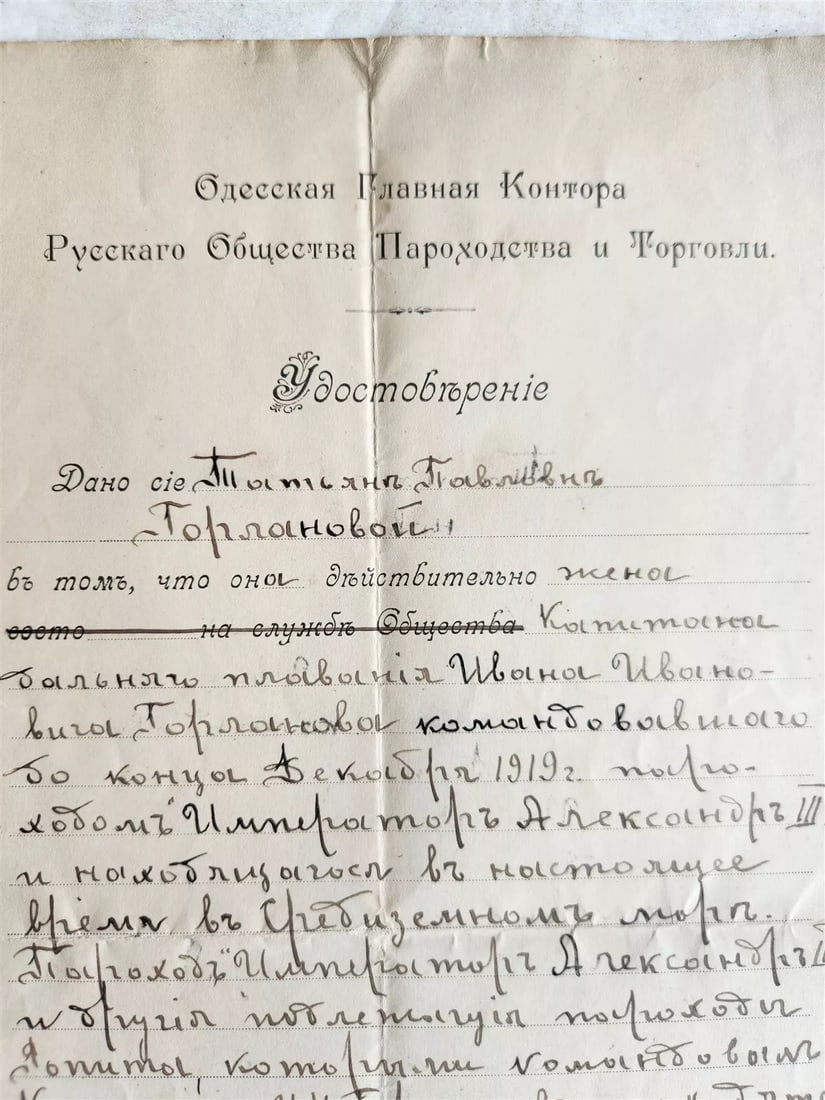 Одесская Главная Контора
Русскаго Общества Пароходства и Торговли.
Удостовѣреніе
Дано сіе Татьянѣ Павловнѣ
Горлановой
въ томъ, что она дѣйствительно жена
состо на службѣ Общества Капитана
дальняго плаванія Ивана Ивано-
вича Горланова командовавшаго
до конца Декабря 1919 г. паро-
ходомъ "Императоръ Александръ III
и находящагося въ настоящее
время въ Средиземномъ морѣ.
Пароходъ "Императоръ Александръ
и другія подлежащія пароходы
Ропита, которыми командовалъ